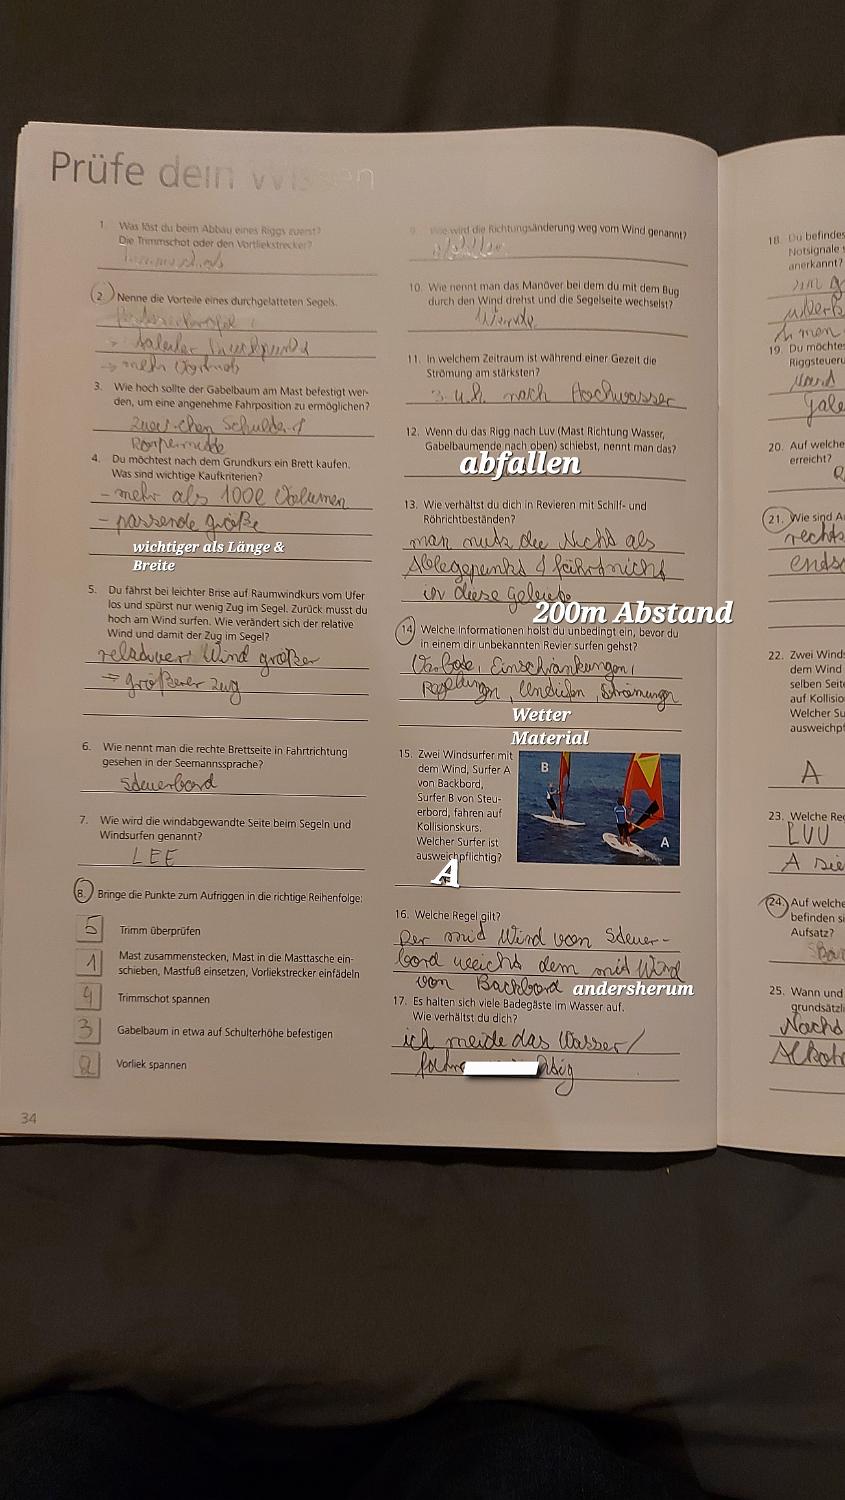 Prüfe dein Wissen
1. Was löst du beim Abbau eines Riggs zuerst?
Die Trimmschot oder den Vortliekstrecker?
Trimmschot
2. Nenne die Vorteile eines durchgelatteten Segels.
→ stabiler Druckpunkt
→ mehr Vortrieb
3. Wie hoch sollte der Gabelbaum am Mast befestigt wer-
den, um eine angenehme Fahrposition zu ermöglichen?
zwischen Schulder &
Körpermitte
4. Du möchtest nach dem Grundkurs ein Brett kaufen.
Was sind wichtige Kaufkriterien?
- mehr als 100l Volumen
- passende größe
wichtiger als Länge &
Breite
5. Du fährst bei leichter Brise auf Raumwindkurs vom Ufer
los und spürst nur wenig Zug im Segel. Zurück musst du
hoch am Wind surfen. Wie verändert sich der relative
Wind und damit der Zug im Segel?
relativer Wind größer
⇒ größerer zug
6. Wie nennt man die rechte Brettseite in Fahrtrichtung
gesehen in der Seemannssprache?
Steuerbord
7. Wie wird die windabgewandte Seite beim Segeln und
Windsurfen genannt?
LEE
8. Bringe die Punkte zum Aufriggen in die richtige Reihenfolge:
5 Trimm überprüfen
1 Mast zusammenstecken, Mast in die Masttasche ein-
schieben, Mastfuß einsetzen, Vorliekstrecker einfädeln
4 Trimmschot spannen
3 Gabelbaum in etwa auf Schulterhöhe befestigen
2 Vorliek spannen
34
9. Wie wird die Richtungsänderung weg vom Wind genannt?
abfallen
10. Wie nennt man das Manöver bei dem du mit dem Bug
durch den Wind drehst und die Segelseite wechselst?
Wende
11. In welchem Zeitraum ist während einer Gezeit die
Strömung am stärksten?
3. u.h. nach Hochwasser
12. Wenn du das Rigg nach Luv (Mast Richtung Wasser,
Gabelbaumende nach oben) schiebst, nennt man das?
abfallen
13. Wie verhältst du dich in Revieren mit Schilf- und
Röhrichtbeständen?
man nutz die Nicht als
Ablegepunkt & fährt nicht
in diese Gebiete
200m Abstand
14. Welche Informationen holst du unbedingt ein, bevor du
in einem dir unbekannten Revier surfen gehst?
Verbote, Einschränkungen,
Regelungen, Untiefen, Strömungen
Wetter
Material
15. Zwei Windsurfer mit
dem Wind, Surfer A
von Backbord,
Surfer B von Steu-
erbord, fahren auf
Kollisionskurs.
Welcher Surfer ist
ausweichpflichtig?
B
A
A
16. Welche Regel gilt?
Der mid Wind von Steuer-
bord weicht dem mit Wind
von Backbord andersherum
17. Es halten sich viele Badegäste im Wasser auf.
Wie verhältst du dich?
ich meide das Wasser/
fahre
18. Du befindes
Notsignale
anerkannt?
19. Du möchte
Riggsteueru
20. Auf welche
erreicht?
21. Wie sind A
rechts
ends
22. Zwei Winds
dem Wind
selben Seite
auf Kollisio
Welcher Su
ausweichpf
A
23. Welche Reg
LUV
A sie
24. Auf welche
befinden si
Aufsatz?
25. Wann und
grundsätzli
Nachts
Alkoh